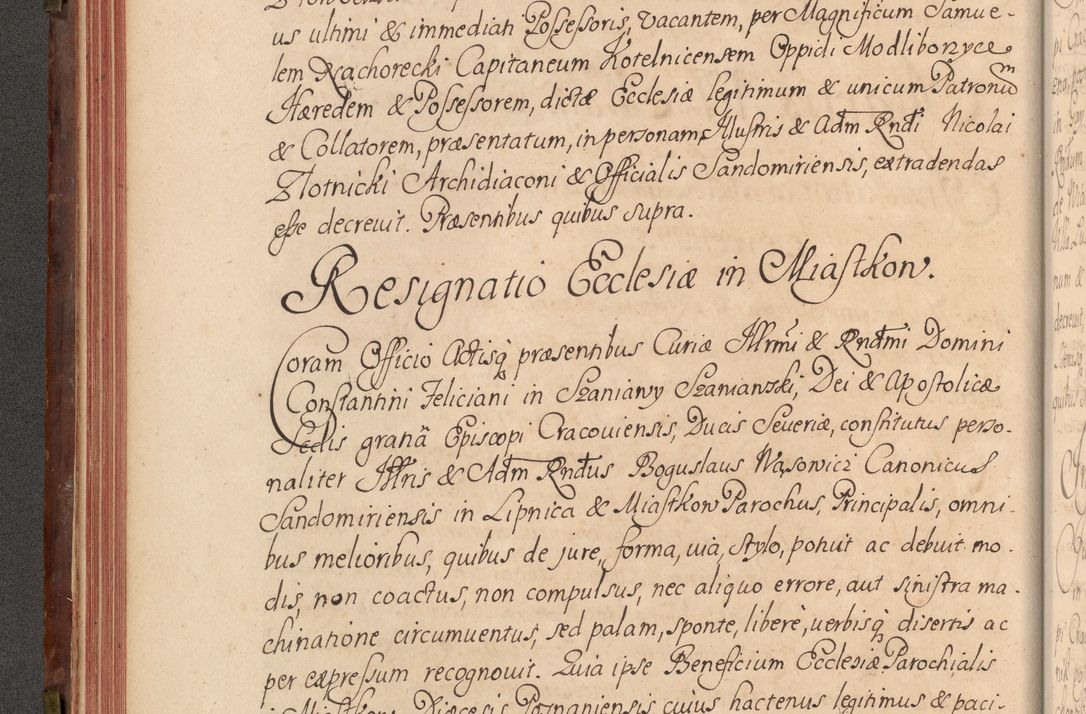 us ultimi & immediati Possessoris, vacantem, per Magnificum Samue-
lem Rachorecki Capitaneum Kotelnicensem Oppidi Modliborzyce
Hæredem & Possessorem, dictæ Ecclesiæ legitimum & unicum Patronum
& Collatorem, præsentatum, in personam Illustris & Adm Rndi Nicolai
Złotnicki Archidiaconi & Officialis Sandomiriensis, extradendas
esse decrevit. Præsentibus quibus supra.
Resignatio Ecclesiæ in Miastkow.
Coram Officio Actisq præsentibus Curiæ Illrmi & Rndmi Domini
Constantini Feliciani in Szaniawy Szaniawski, Dei & Apostolicæ
Sedis gratiâ Episcopi Cracoviensis, Ducis Severiæ, constitutus perso-
naliter Illris & Adm Rndus Boguslaus Wąsowicz Canonicus
Sandomiriensis in Lipnica & Miastkow Parochus, Principalis, omni-
bus melioribus, quibus de jure, forma, via, stylo, potuit ac debuit mo-
dis, non coactus, non compulsus, nec aliquo errore, aut sinistra ma-
chinatione circumventus, sed palam, sponte, libere, verbisq disertis ac
per expressum recognovit. Quia ipse Beneficium Ecclesiæ Parochialis
Miastkow Diæcesis Posnaniensis cuius hactenus legitimus & paci-